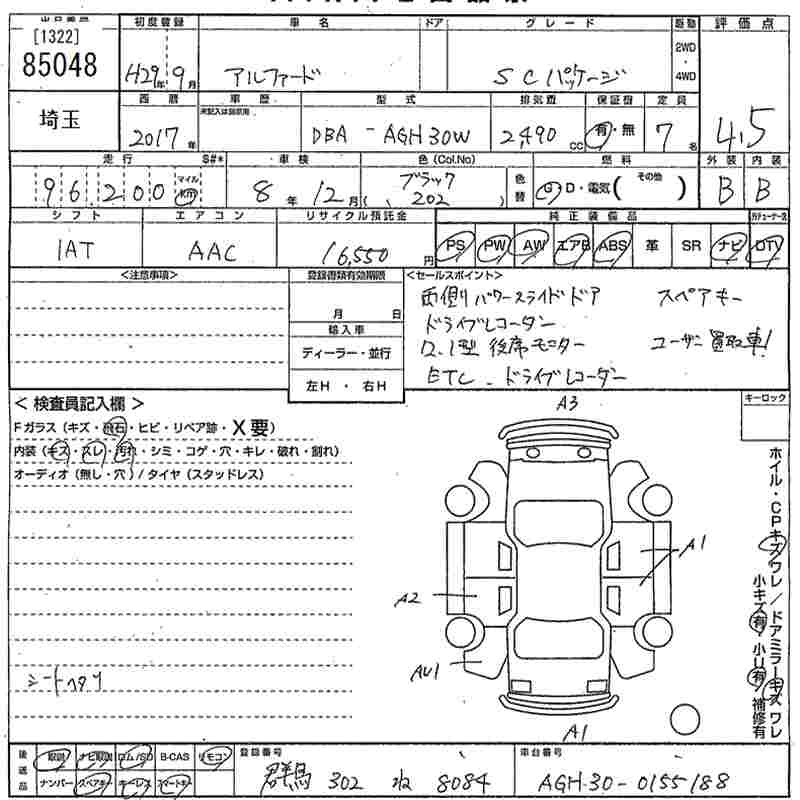 [1322]
85048
埼玉
初度登録 車名 ドア グレード 駆動 評価点
H29年9月 アルファード SCパッケージ 2WD・4WD 4.5
西暦 車歴 型式 排気量 保証書 定員
未記入は自家用
2017年 DBA-AGH30W 2,490cc 有・無 7名
走行 S#* 車検 色(Col.No) 燃料 外装 内装
96200 マイル km 8年12月 ブラック (202) 色替 G・D・電気(その他) B B
シフト エアコン リサイクル預託金 純正装備品
IAT AAC 16,550円 PS PW AW エアB ABS 革 SR ナビ DTV
<注意事項> 登録書類有効期限 <セールスポイント>
月 日
輸入車
ディーラー・並行
左H・右H
両側パワースライドドア スペアキー
ドライブレコーダー
12.1型 後席モニター ユーザー買取車!
ETC. ドライブレコーダー
<検査員記入欄> A3 キーロック
Fガラス(キズ・飛石・ヒビ・リペア跡・X要)
内装(キズ・スレ・汚れ・シミ・コゲ・穴・キレ・破れ・割れ)
オーディオ(無し・穴)/タイヤ(スタッドレス)
ホイル・CPキズワレ/ドアミラーキズワレ
小キズ有/小U有/補修有
A1
A2
シートヘタリ
AU1
A1
後送品 取説 ナビ取説 ロム/SD B-CAS リモコン 登録番号 車台番号
ナンバー スペアキー ホーレス スマートキー 群馬 302 ね 8084 AGH30-0155188